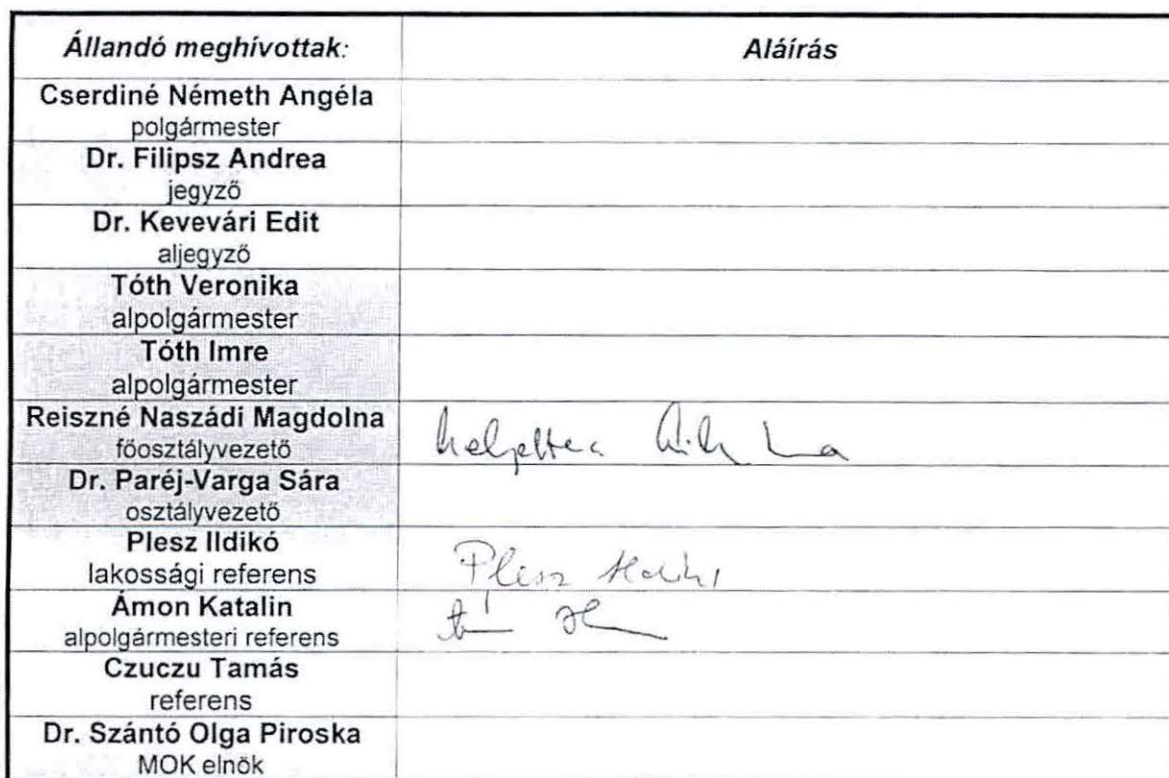 Állandó meghívottak: Aláírás
Cserdiné Németh Angéla
polgármester
Dr. Filipsz Andrea
jegyző
Dr. Kevevári Edit
aljegyző
Tóth Veronika
alpolgármester
Tóth Imre
alpolgármester
Reiszné Naszádi Magdolna
főosztályvezető
helyettes
Dr. Paréj-Varga Sára
osztályvezető
Plesz Ildikó
lakossági referens
Plesz Ildikó
Ámon Katalin
alpolgármesteri referens
Czuczu Tamás
referens
Dr. Szántó Olga Piroska
MOK elnök